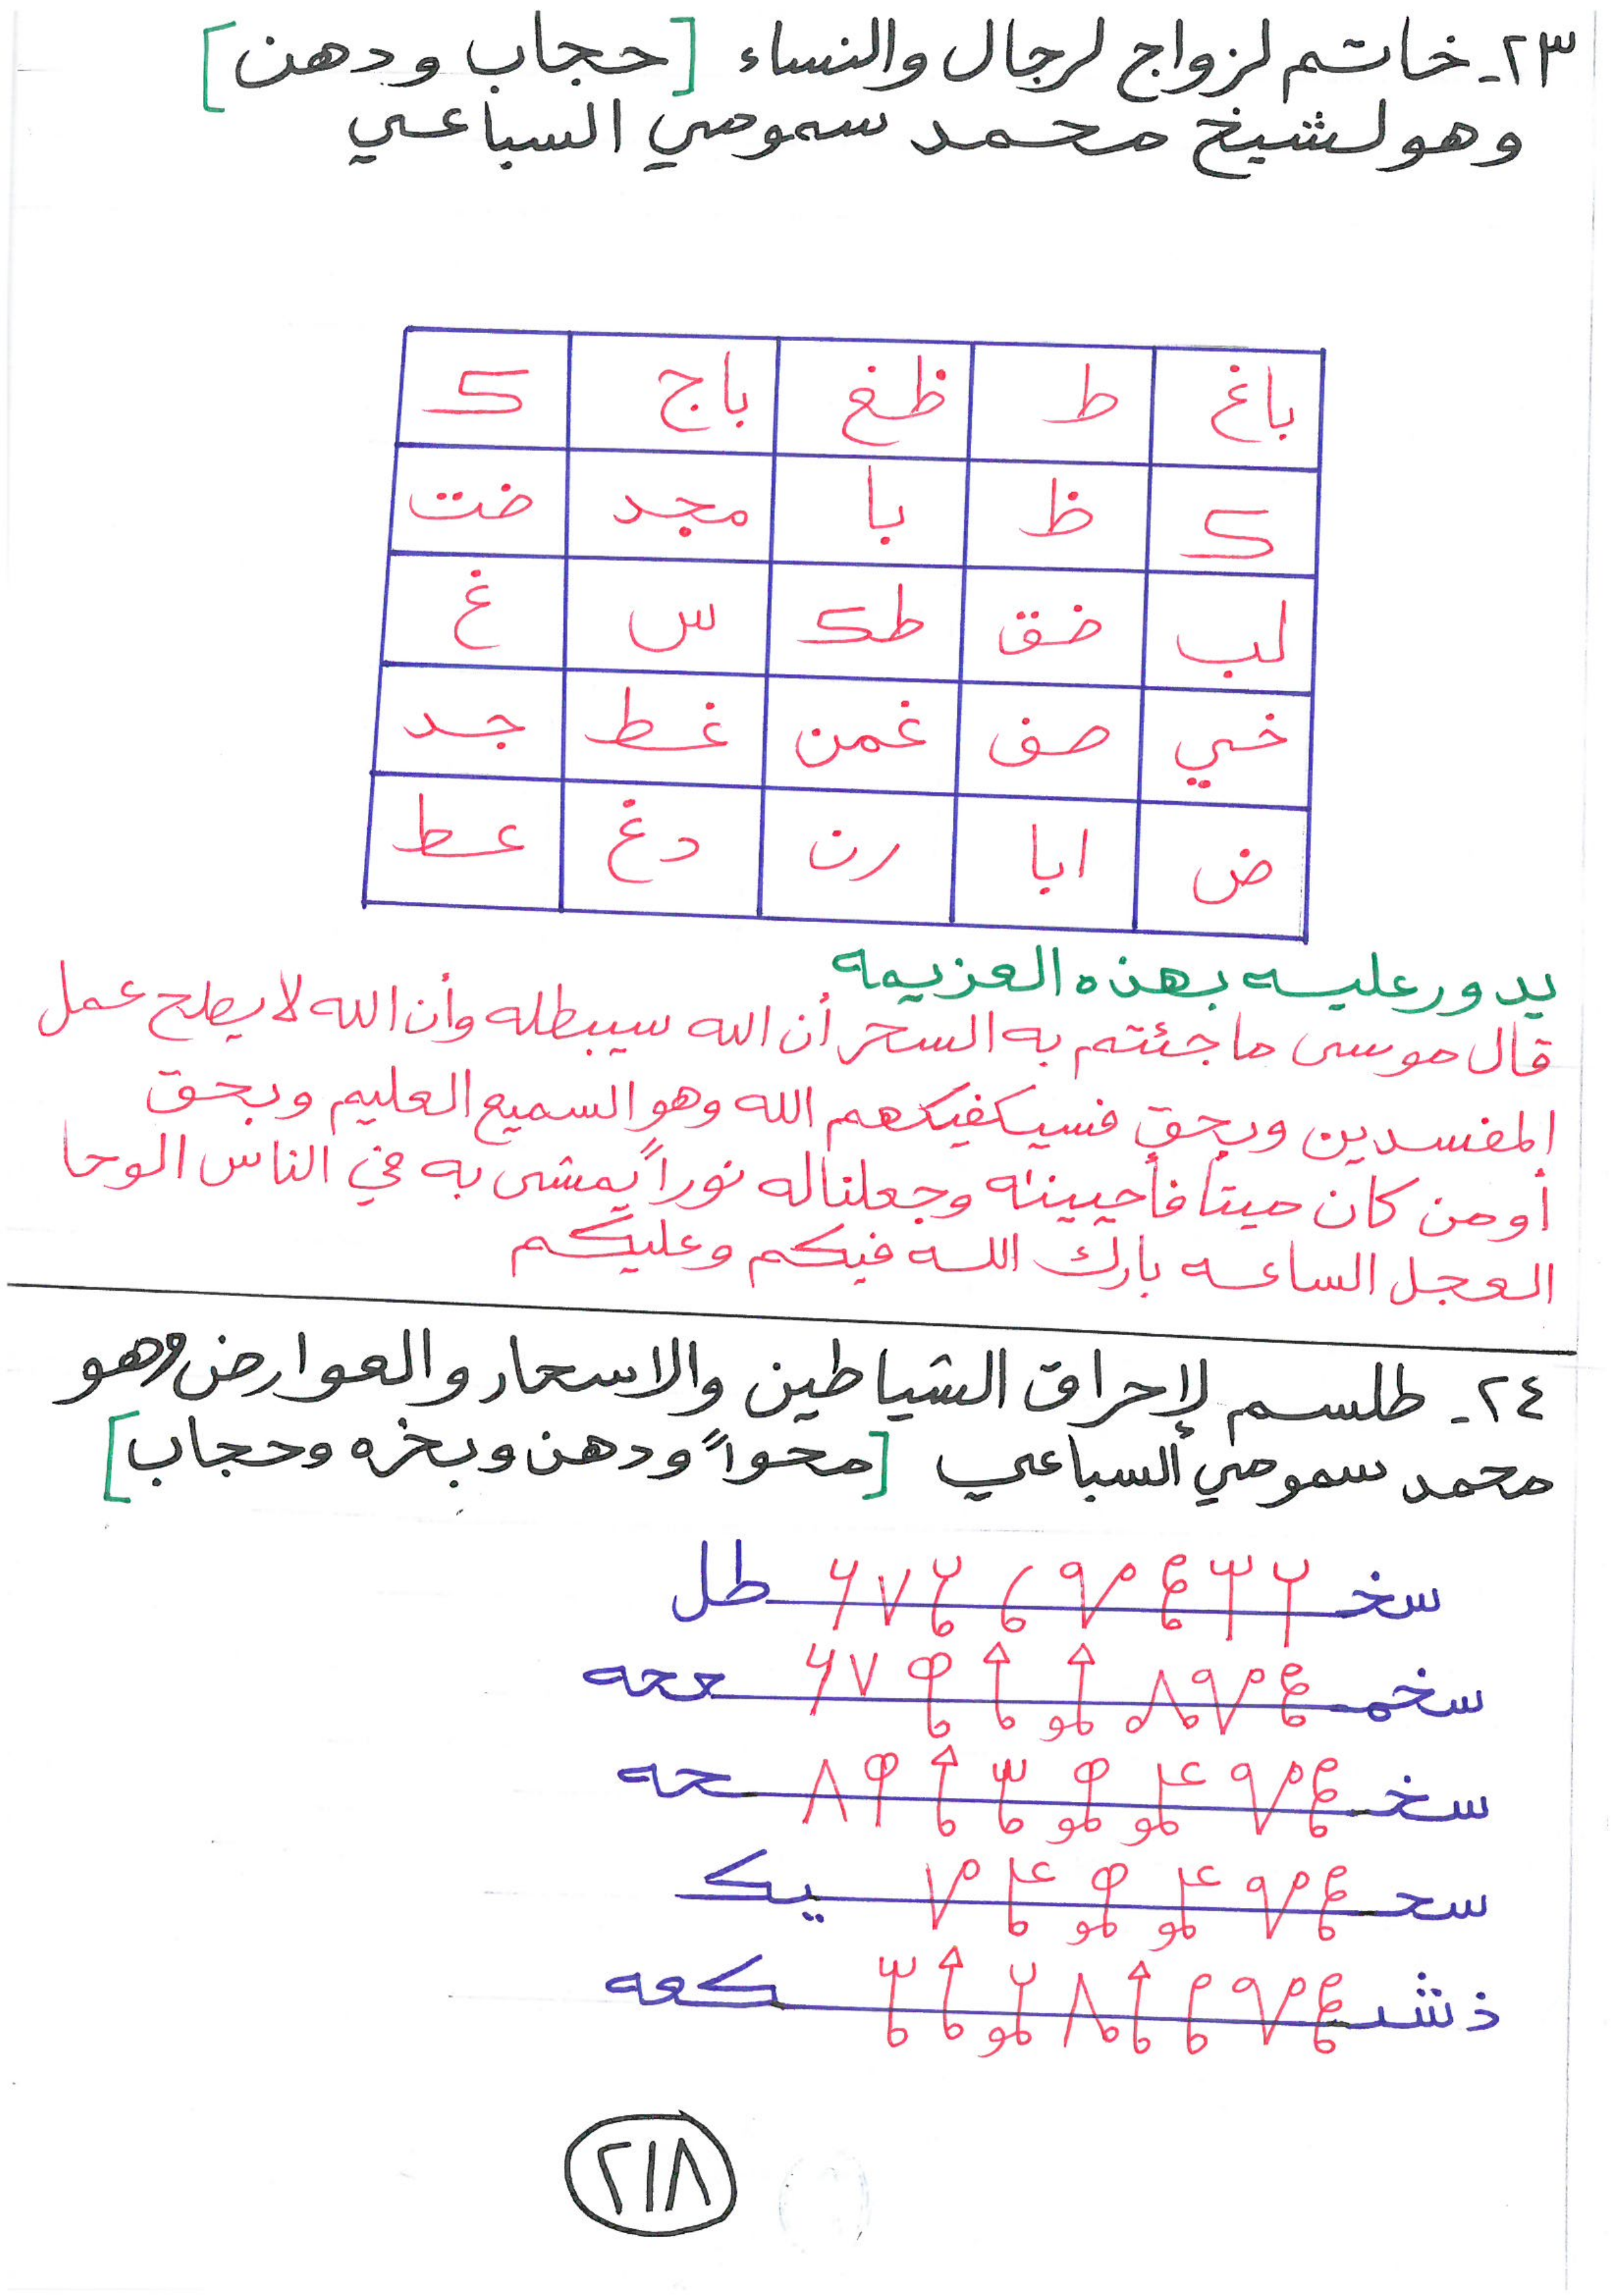 ٢٣- خاتم لزواج لرجال والنساء [حجاب ودهن]
وهو لشيخ محمد سموصي السباعي
باغ ط ظغ باج ك
ك ظ با مجد ضت
لب ضق طك س غ
خي صف غمن غط جد
ض ابا رن دغ عط
يدور عليه بهذه العزيمه
قال موسى ما جئتم به السحر أن الله سيبطله وأن الله لا يصلح عمل
المفسدين وبحق فسيكفيكهم الله وهو السميع العليم وبحق
أومن كان ميتاً فأحيينه وجعلنا له نوراً يمشى به في الناس الوحا
العجل الساعه بارك الله فيكم وعليكم
٢٤- طلسم لإحراق الشياطين والاسحار والعوارض وهو
محمد سموصي ألسباعي [محواً ودهن وبخره وحجاب]
سخ طل
سخم ححه
سخ حه
سح يك
ذشد كعه
٢١٨